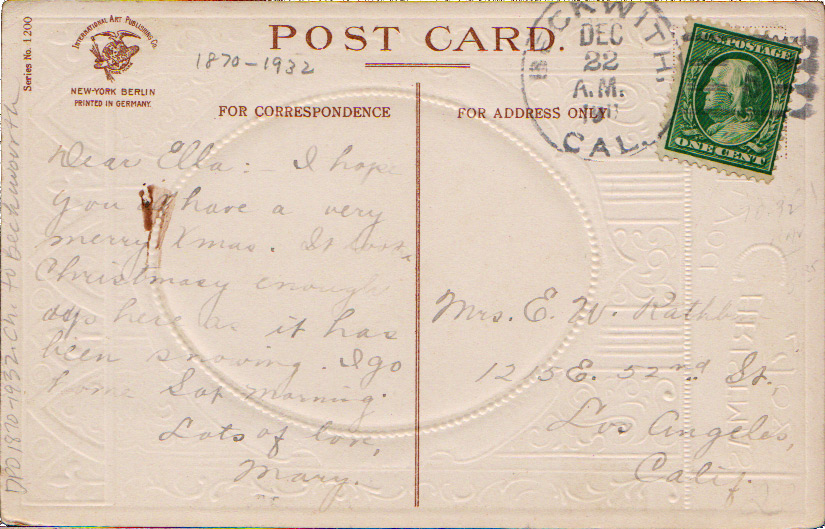 Series No. 1200
INTERNATIONAL ART PUBLISHING CO.
NEW-YORK BERLIN
PRINTED IN GERMANY.
POST CARD.
1870-1932
BECKWITH.
DEC
22
A.M.
CAL.
U.S. POSTAGE
ONE CENT
FOR CORRESPONDENCE
FOR ADDRESS ONLY
Dear Ella:- I hope
you have a very
merry Xmas. It looks
Christmasy enough
here as it has
been snowing. I go
home Sat morning.
Lots of love,
Mary.
Mrs. E. W. Rathbun
1215 E. 52nd St.,
Los Angeles,
Calif.
DPO 1870-1932. Ch. to Beckwourth